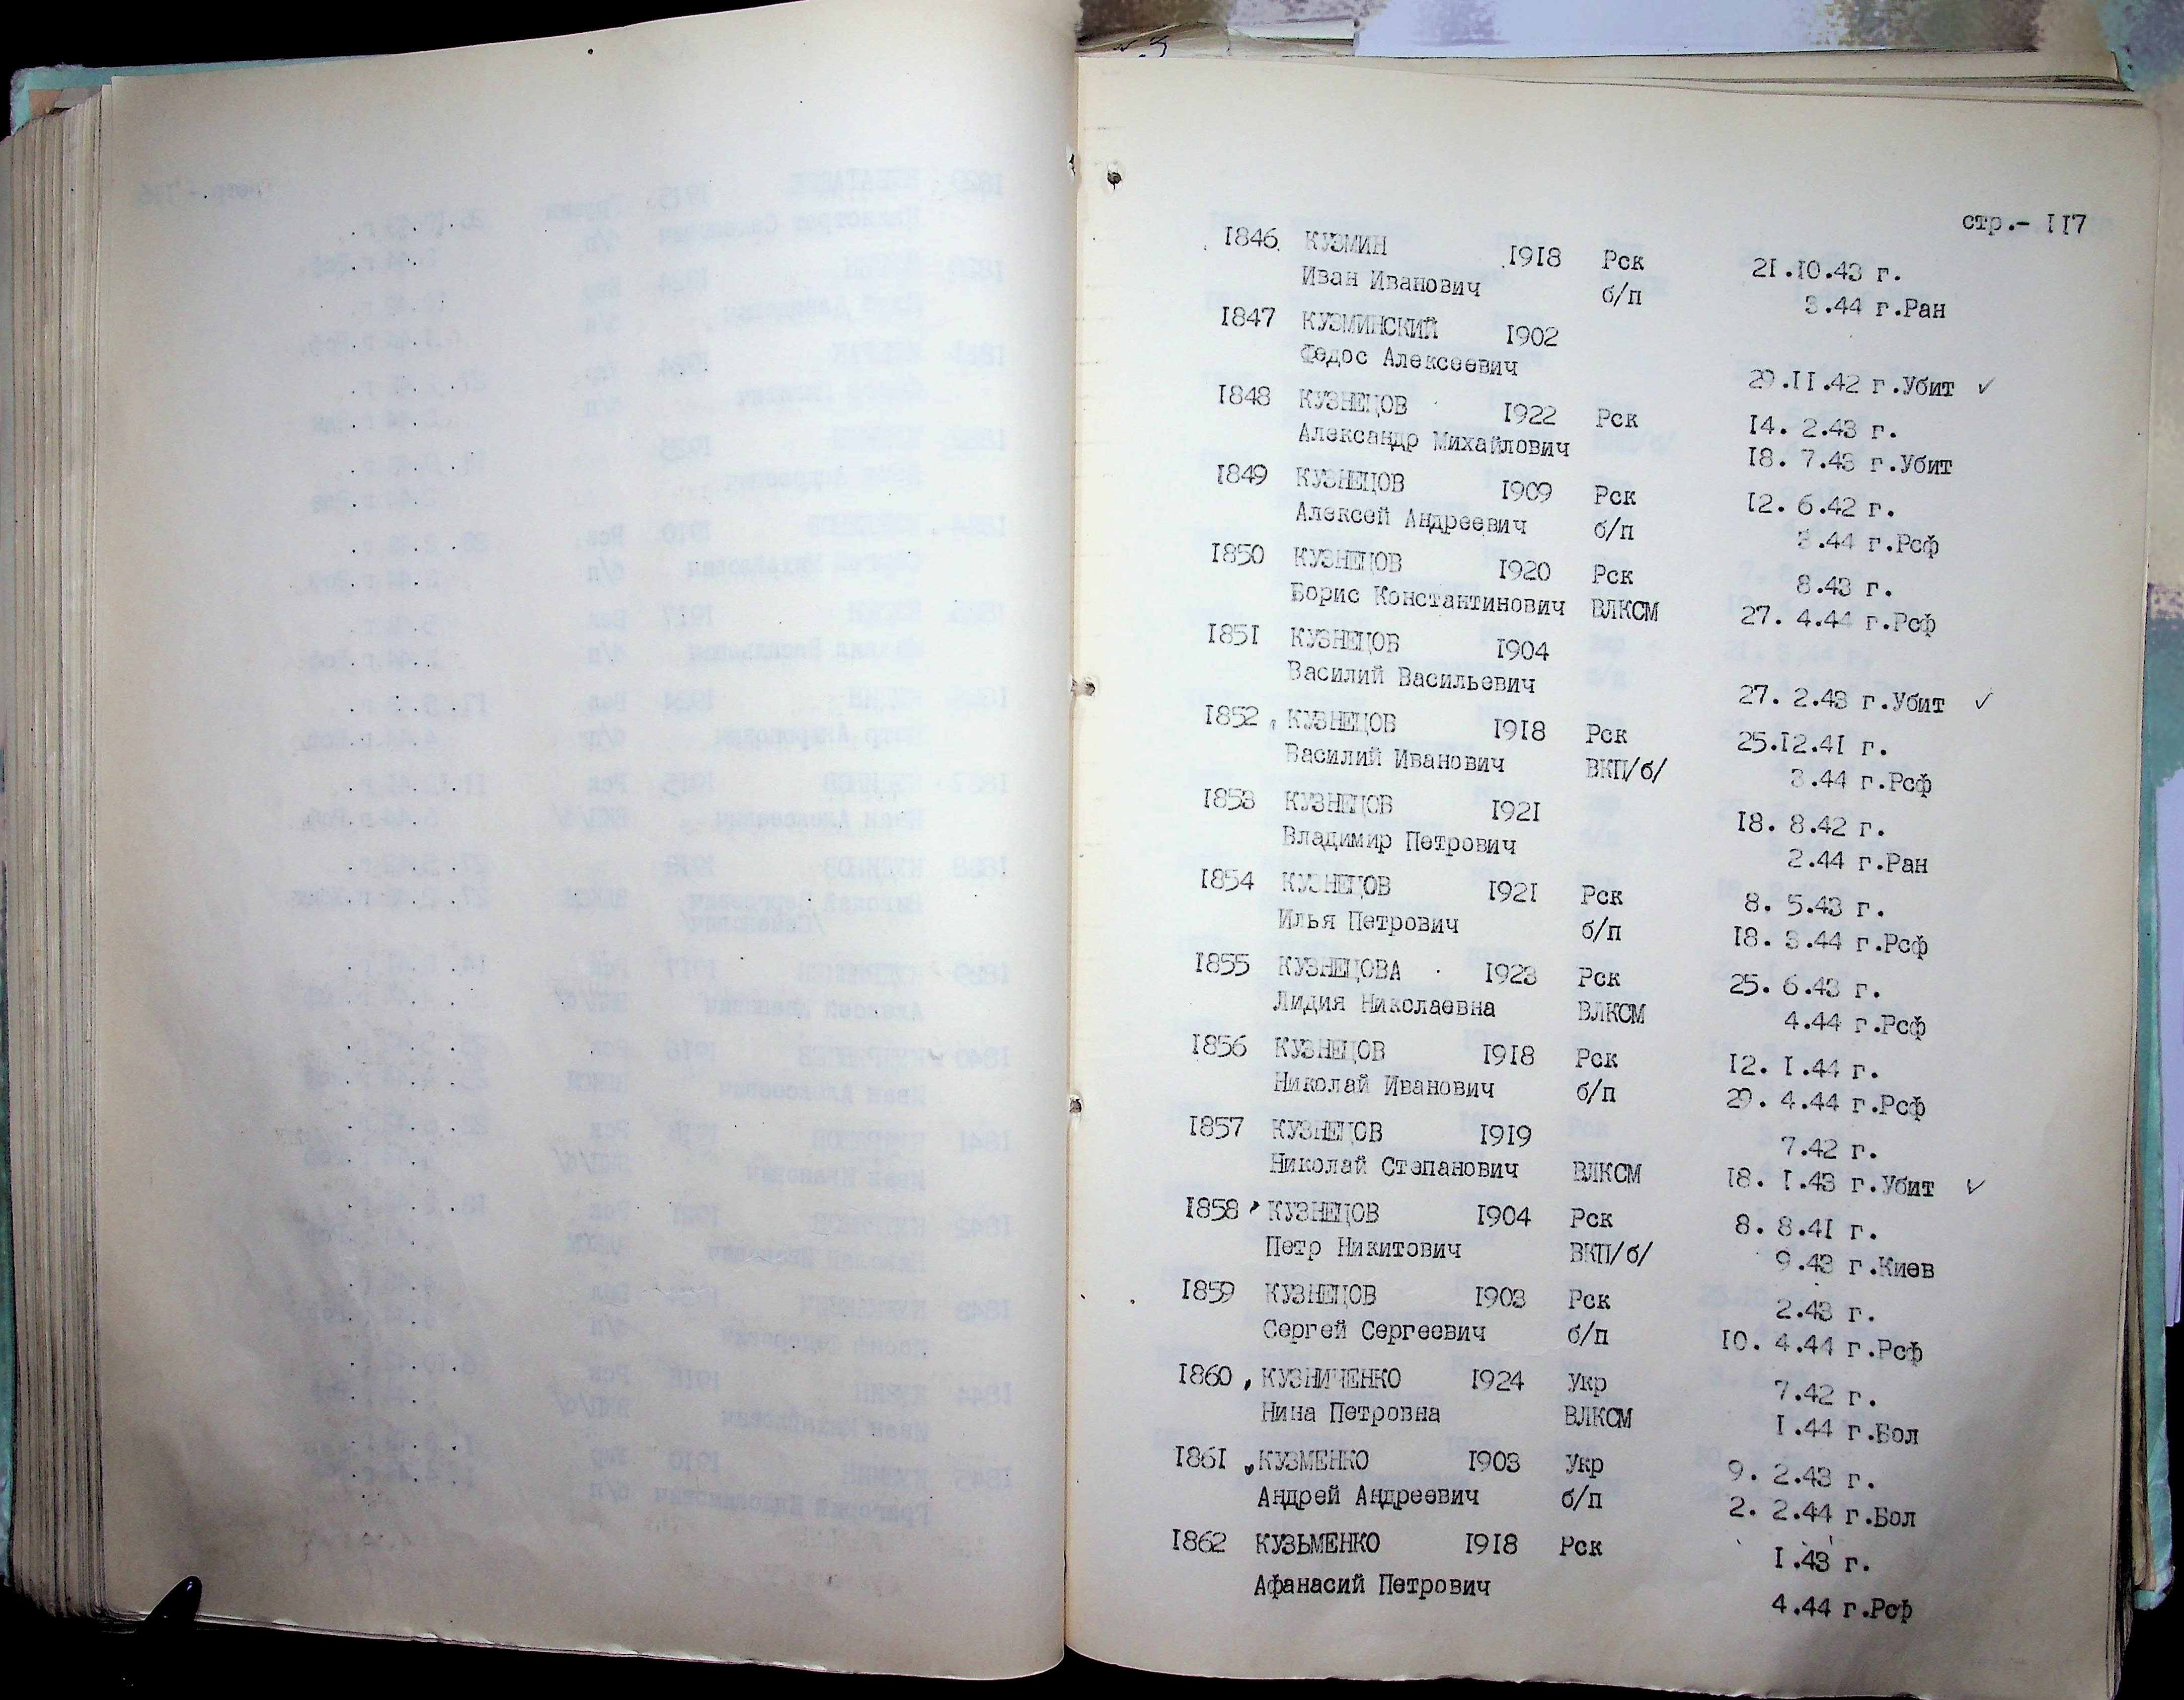 стр.- 117
1846 КУЗМИН 1918 Рск 21.10.43 г.
Иван Иванович б/п 3.44 г.Ран
1847 КУЗМИНСКИЙ 1902
Федос Алексеевич 29.11.42 г.Убит ✓
1848 КУЗНЕЦОВ 1922 Рск 14. 2.43 г.
Александр Михайлович 18. 7.43 г.Убит
1849 КУЗНЕЦОВ 1909 Рск 12. 6.42 г.
Алексей Андреевич б/п 3.44 г.Рсф
1850 КУЗНЕЦОВ 1920 Рск 8.43 г.
Борис Константинович ВЛКСМ 27. 4.44 г.Рсф
1851 КУЗНЕЦОВ 1904
Василий Васильевич 27. 2.43 г.Убит ✓
1852 КУЗНЕЦОВ 1918 Рск 25.12.41 г.
Василий Иванович ВКП/б/ 3.44 г.Рсф
1853 КУЗНЕЦОВ 1921 18. 8.42 г.
Владимир Петрович 2.44 г.Ран
1854 КУЗНЕЦОВ 1921 Рск 8. 5.43 г.
Илья Петрович б/п 18. 3.44 г.Рсф
1855 КУЗНЕЦОВА 1923 Рск 25. 6.43 г.
Лидия Николаевна ВЛКСМ 4.44 г.Рсф
1856 КУЗНЕЦОВ 1918 Рск 12. 1.44 г.
Николай Иванович б/п 29. 4.44 г.Рсф
1857 КУЗНЕЦОВ 1919 7.42 г.
Николай Степанович ВЛКСМ 18. 1.43 г.Убит ✓
1858 КУЗНЕЦОВ 1904 Рск 8. 8.41 г.
Петр Никитович ВКП/б/ 9.43 г.Киев
1859 КУЗНЕЦОВ 1903 Рск 2.43 г.
Сергей Сергеевич б/п 10. 4.44 г.Рсф
1860 КУЗНИЧЕНКО 1924 Укр 7.42 г.
Нина Петровна ВЛКСМ 1.44 г.Бол
1861 КУЗМЕНКО 1903 Укр 9. 2.43 г.
Андрей Андреевич б/п 2. 2.44 г.Бол
1862 КУЗЬМЕНКО 1918 Рск 1.43 г.
Афанасий Петрович 4.44 г.Рсф